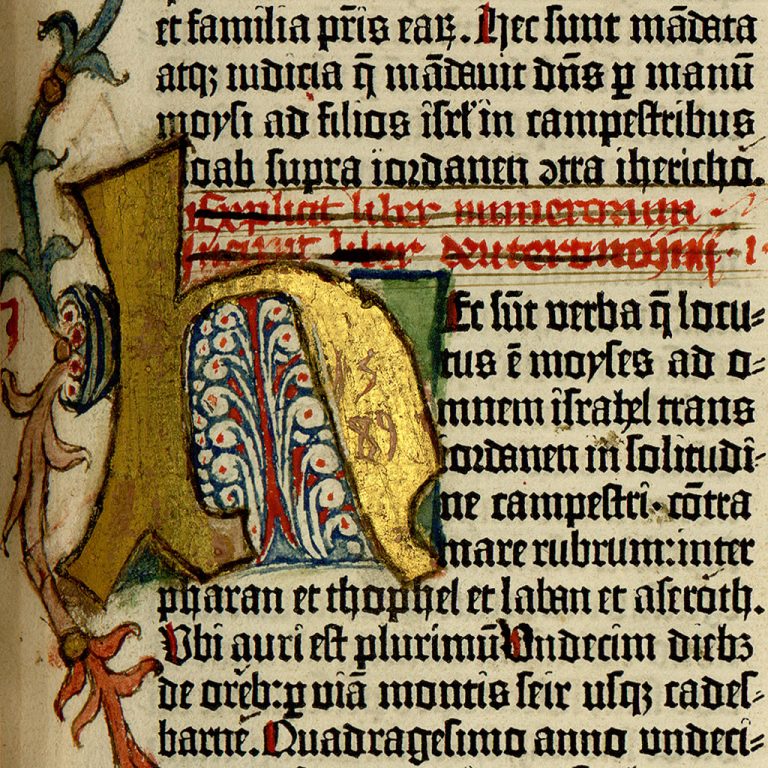 et familia pr̄is eaꝝ. Hec sunt mādata
atqꝫ iudicia q̄ mādauit dn̄s ꝑ manū
moysi ad filios isrl̄ in campestribus
moab supra iordanen ↄtra ihericho.
Explicit liber numerorum
Incipit liber deuteronomii
Hec sūt verba q̄ locu⸗
tus ē moyses ad o⸗
mnem israhel trans
iordanen in solitudi⸗
ne campestri· cōtra
mare rubrum: inter
pharan et thophel et laban et aseroth.
Vbi auri est plurimū Vndecim diebꝫ
de oreb: ꝑ viā montis seir usqꝫ cades⸗
barne. Quadragesimo anno undeci⸗
15
89